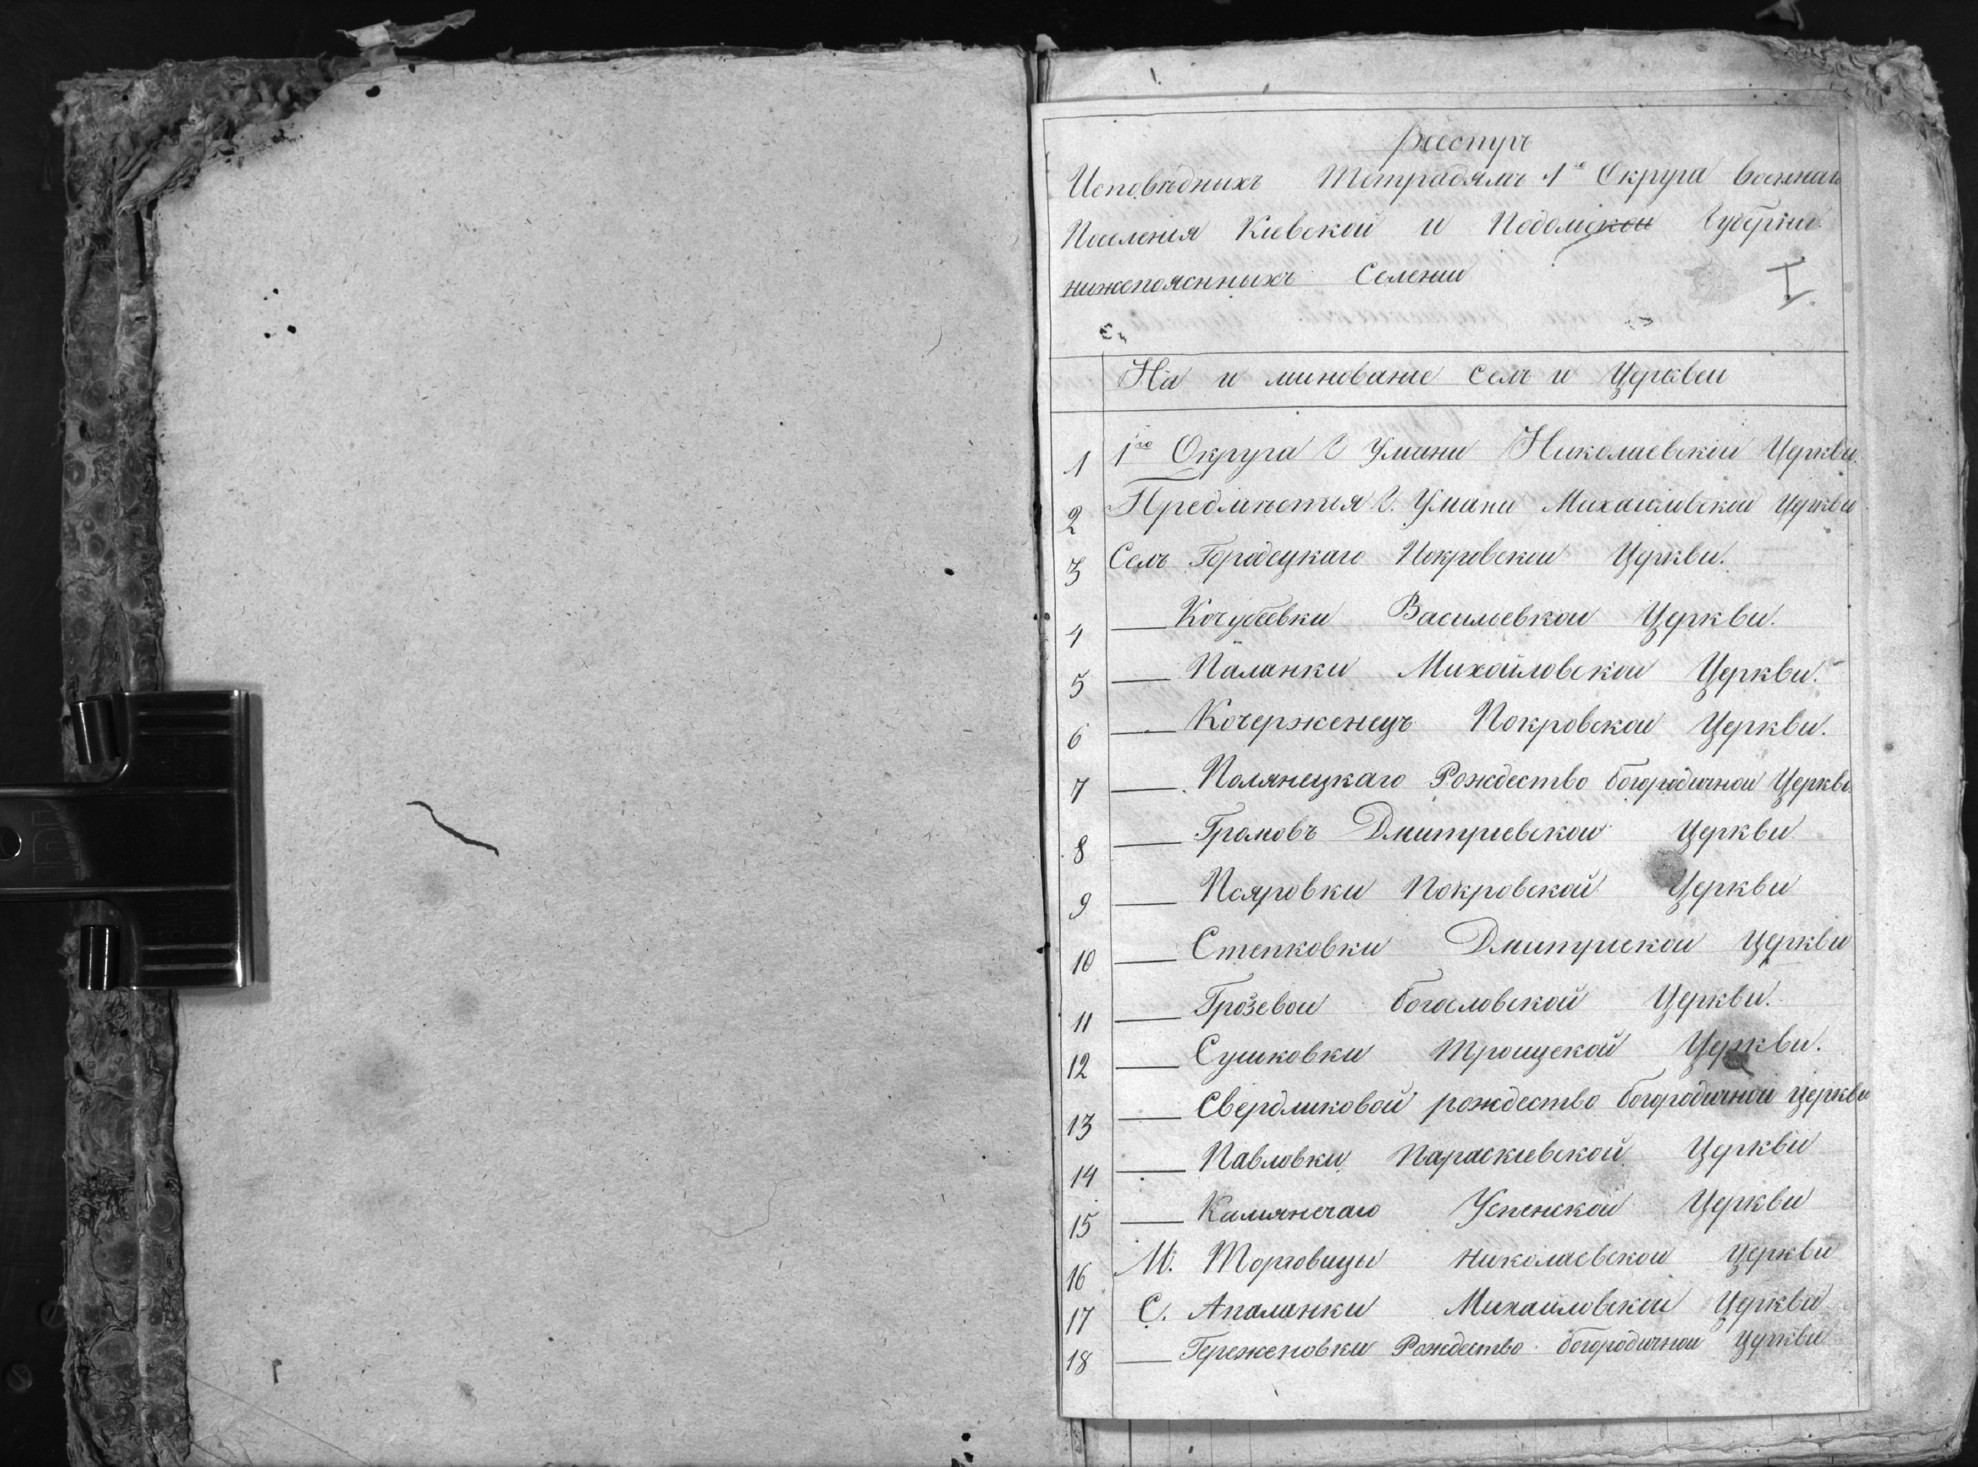 реестръ
Исповѣдныхъ Тетрадямъ 1го Округа военнаго
Поселения Киевской и Подольской Губерніи
нижепоясненныхъ Селении
I
На и минование селъ и Церквеи
1 1го Округа г Умани Николаевской Церкви.
2 Предмѣстья г. Умани Михаиловской Церкви
3 Селъ Городецкаго Покровскои Церкви.
4 — Кочубеевки Васильевкои Церкви.
5 — Паланки Михайловскои Церкви.
6 — Кочерженецъ Покровскои Церкви.
7 — Полянецкаго Рождество богородичнои Церкви
8 — Громовъ Дмитриевскои Церкви
9 — Псяровки Покровской Церкви
10 — Степковки Дмитрискои Церкви
11 — Грозевои богословской Церкви.
12 — Сушковки Троицской Церкви.
13 — Свердликовой рождество богородичной церкви
14 — Павловки Параскиевской Церкви
15 — Камянечаго Успенской Церкви
16 М. Торговицы Николаевскои Церкви
17 С. Апаланки Михаиловскои Церкви
18 — Гереженовки Рождество богородичнои Церкви